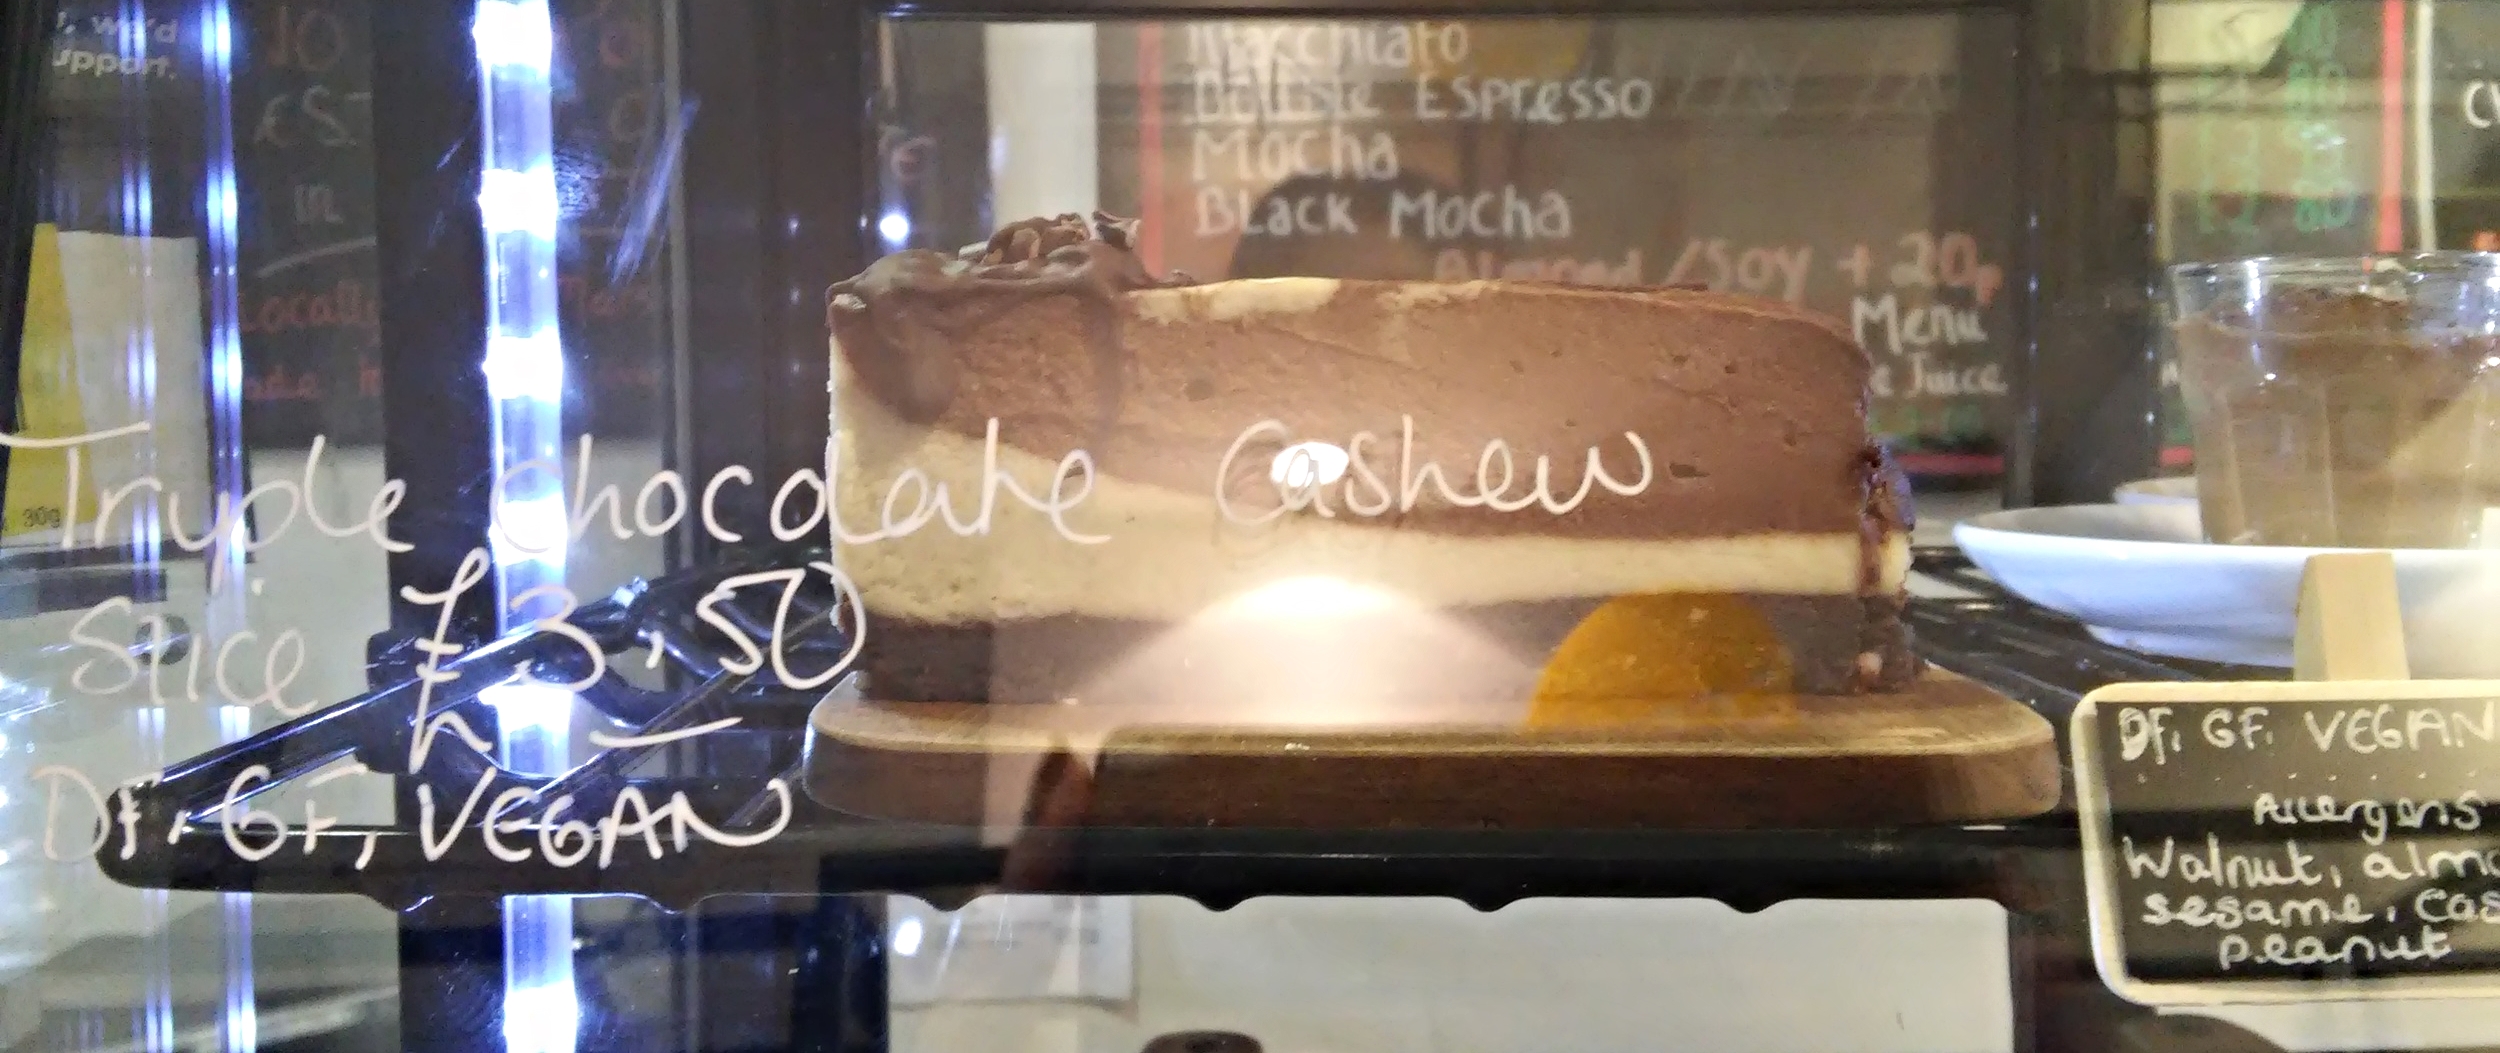 Macchiato
Double Espresso
Mocha
Black Mocha
Almond / Soy + 20p
Menu
Juice
Triple chocolate Cashew
Slice £3.50
DF, GF, VEGAN
30g
DF, GF, VEGAN
Allergens
Walnut,
sesame,
peanut